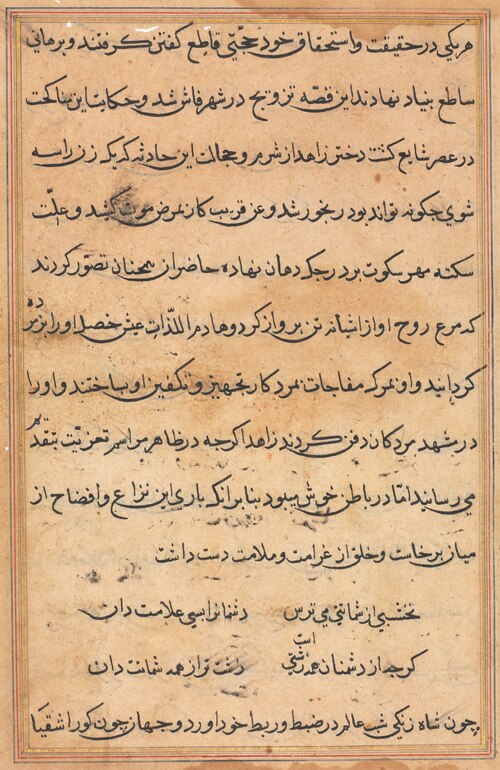 هر یکی در حقیقت و استحقاق خود حجتی قاطع گفتن گرفتند و برهانی
ساطع بنیاد نهادند این قصّه تزویج در شهر فاش شد و حکایت این مناکحت
در عصر شایع کشت دختر زاهد از شرم و خجالت این حادثه که یکه زن را سه
شوی چکونه تواند بود رنجور شد و عن قریب کار بمرض موت کشید و علّت
سکته مهر سکوت بر درجک دهان نهاده حاضران همچنان تصوّر کردند
که مرغ روح او از اشیانه تن پرواز کرد و هادم اللذّات عیش خصل او را بر
کردانید و او بمرکه مفاجات بمرد کار تجهیز و تکفین او بساختند و او را
در مشهد مردکان دفن کردند زاهد اکرچه در ظاهر مراسم تعزیت بتقدیم
می رسانید امّا در باطن خوش میبود بنابرانکه باری این نزاع و افضاح از
میان برخاست و خلق از غرامت و ملامت دست داشت
نخشبی از شماتتی می ترس دشمنانرا بسی علامت دان
کرچه از دشمنان همه زشتی است زشت تر از همه شماتت دان
چون شاه زنکی شب عالم در ضبط و ربط خود اورد و جهان چون کور اشقیا